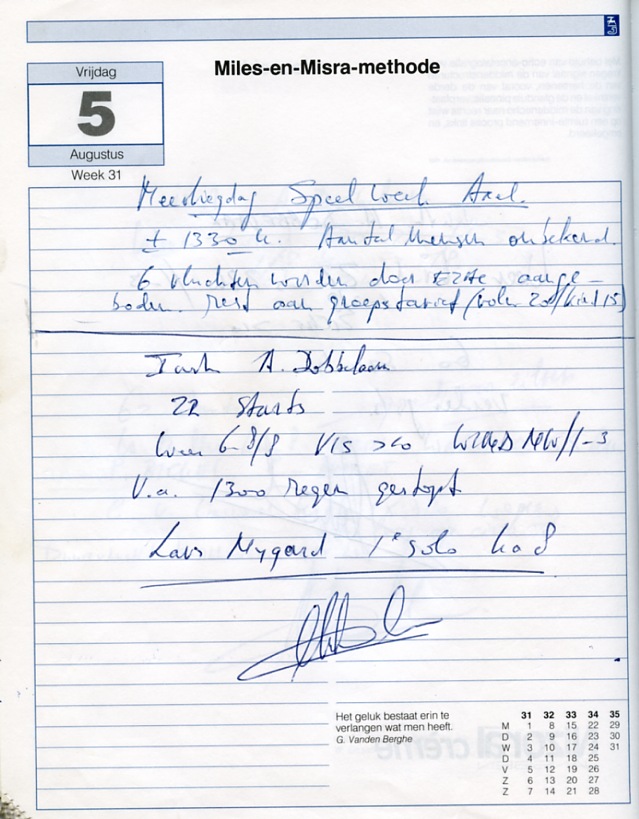 Miles-en-Misra-methode
Vrijdag
5
Augustus
Week 31
Meevliegdag Speelweek Axel.
± 1330 u. Aantal mensen onbekend.
6 vluchten worden door EZAC aange-
boden. Rest aan groepstarief (volw 20/kind 15)
A. Dobbelaar
22 starts
6-8/8 VIS >20
V.a. 1300 regen gestopt
Lars Nygard 1e solo ka 8
Het geluk bestaat erin te
verlangen wat men heeft.
G. Vanden Berghe
31 32 33 34 35
M 1 8 15 22 29
D 2 9 16 23 30
W 3 10 17 24 31
D 4 11 18 25
V 5 12 19 26
Z 6 13 20 27
Z 7 14 21 28